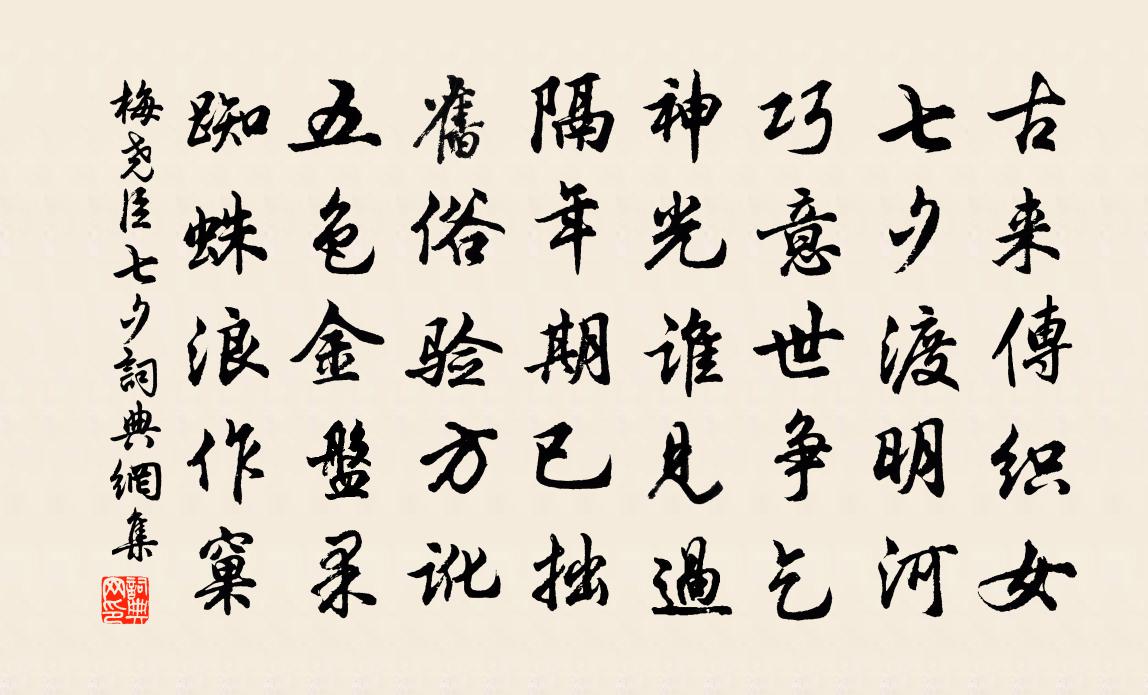 古来傳织女
七夕渡明河
巧意世争乞
神光谁见過
隔年期已拙
舊俗验方讹
五色金盤果
踟蛛浪作窠
梅尧臣七夕詞典網集
詞典网印